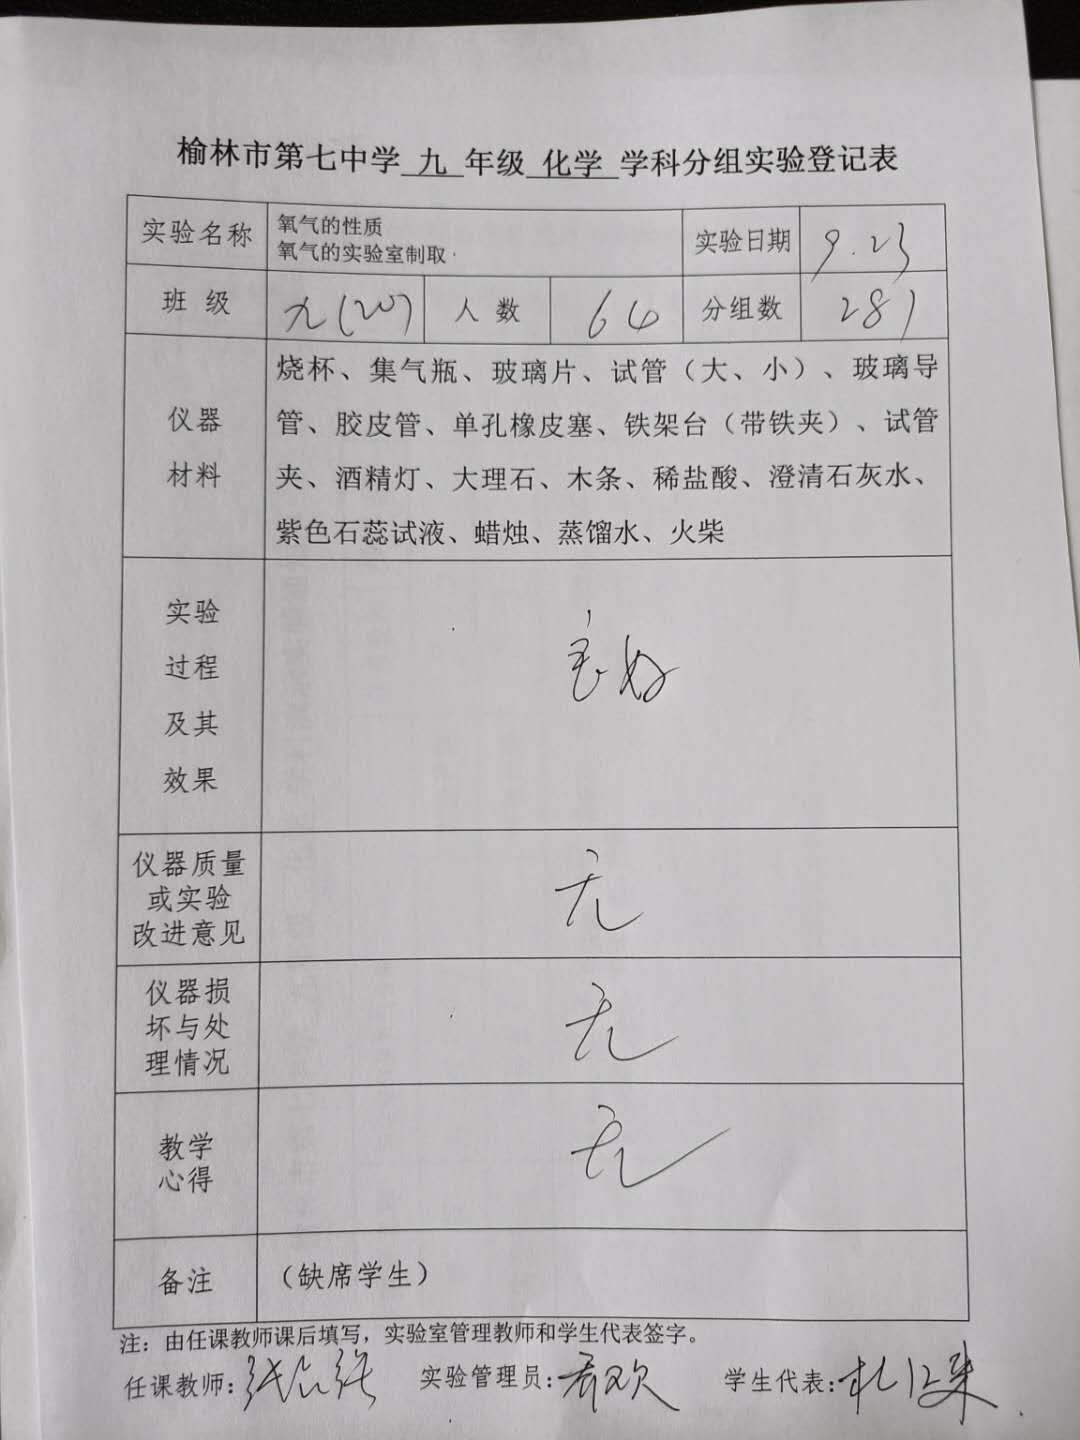 榆林市第七中学 九 年级 化学 学科分组实验登记表
实验名称 氧气的性质 氧气的实验室制取 实验日期 9.23
班 级 九(20) 人 数 64 分组数 281
仪器材料
烧杯、集气瓶、玻璃片、试管（大、小）、玻璃导
管、胶皮管、单孔橡皮塞、铁架台（带铁夹）、试管
夹、酒精灯、大理石、木条、稀盐酸、澄清石灰水、
紫色石蕊试液、蜡烛、蒸馏水、火柴
实验
过程
及其
效果
良好
仪器质量
或实验
改进意见
无
仪器损
坏与处
理情况
无
教学
心得
无
备注 （缺席学生）
注：由任课教师课后填写，实验室管理教师和学生代表签字。
任课教师： 实验管理员： 学生代表：